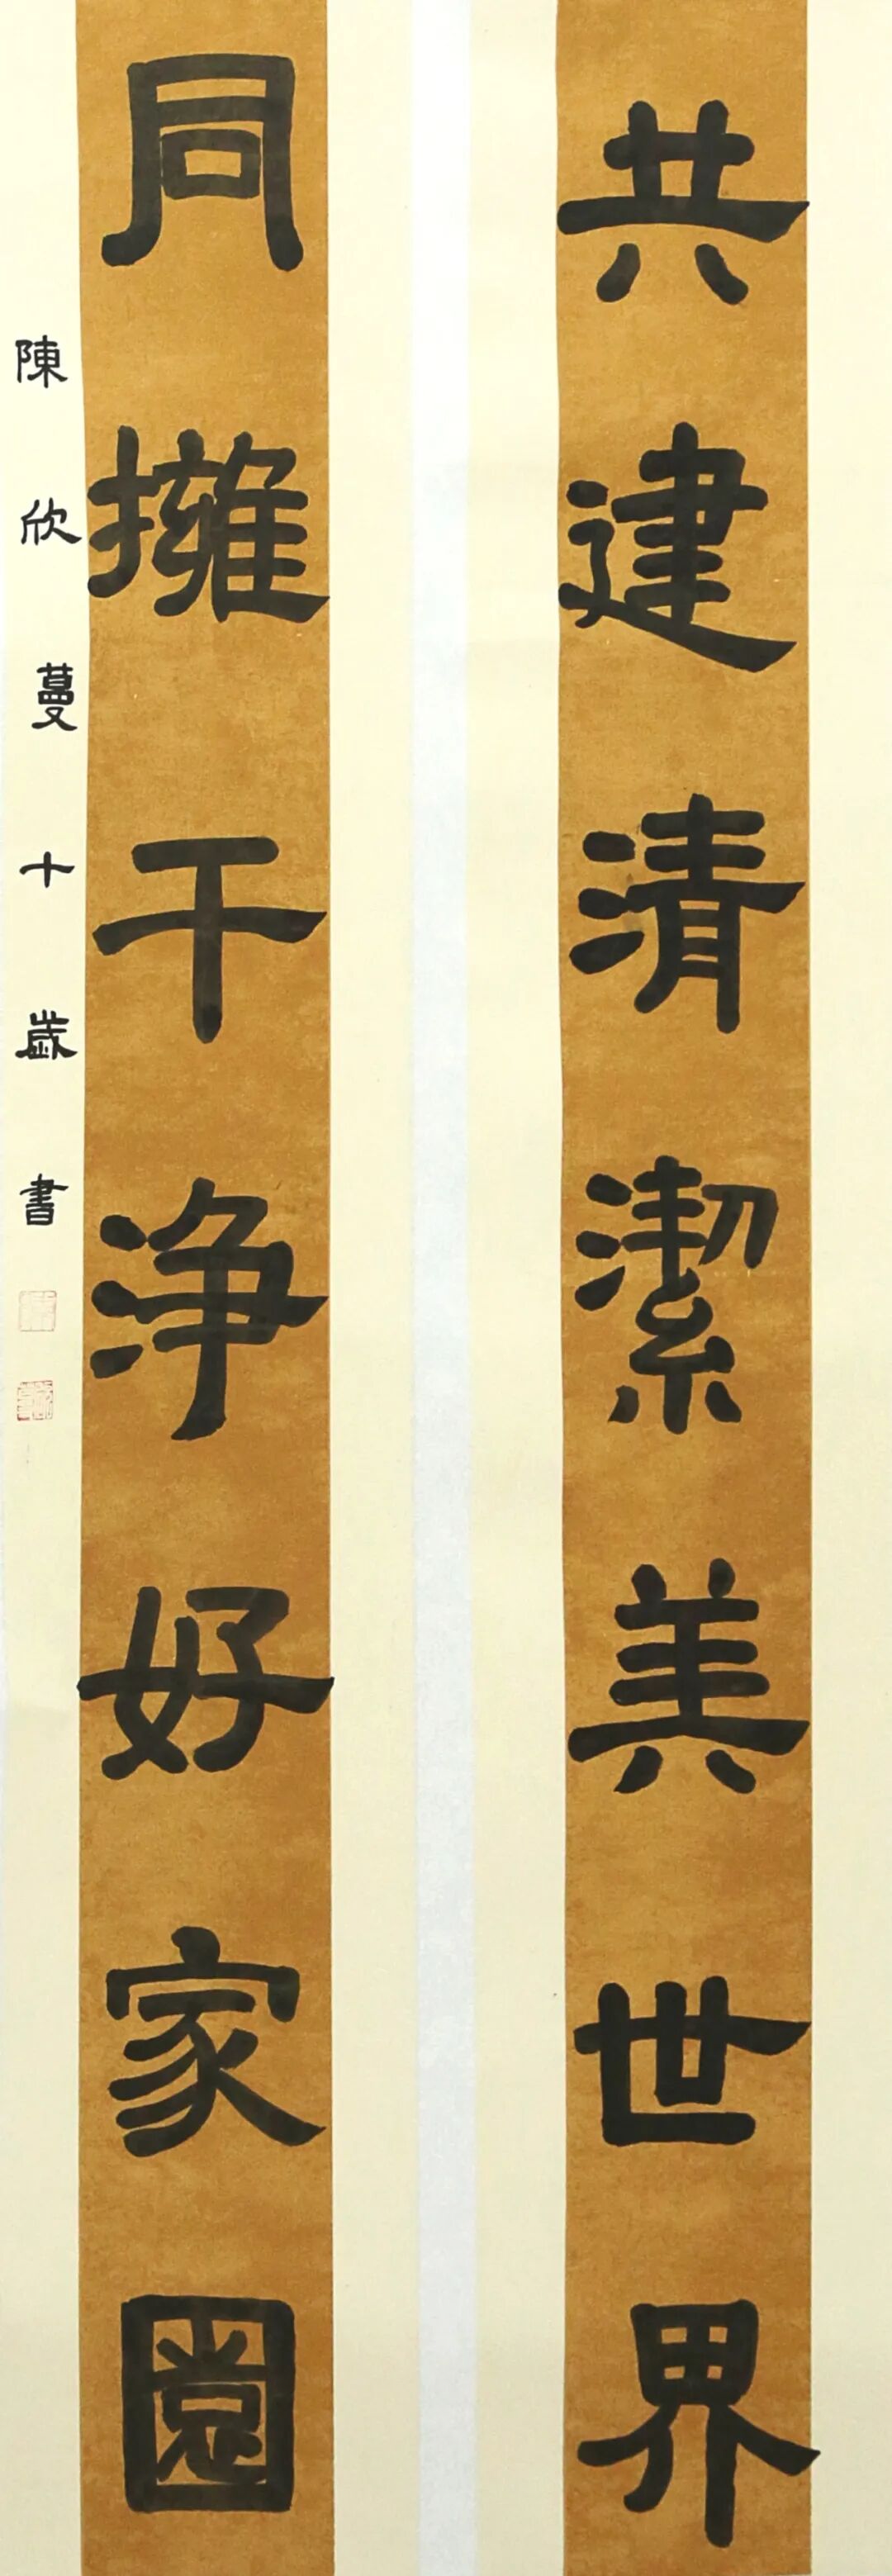 共建清潔美世界
同擁干净好家園
陳欣蔓十歲書